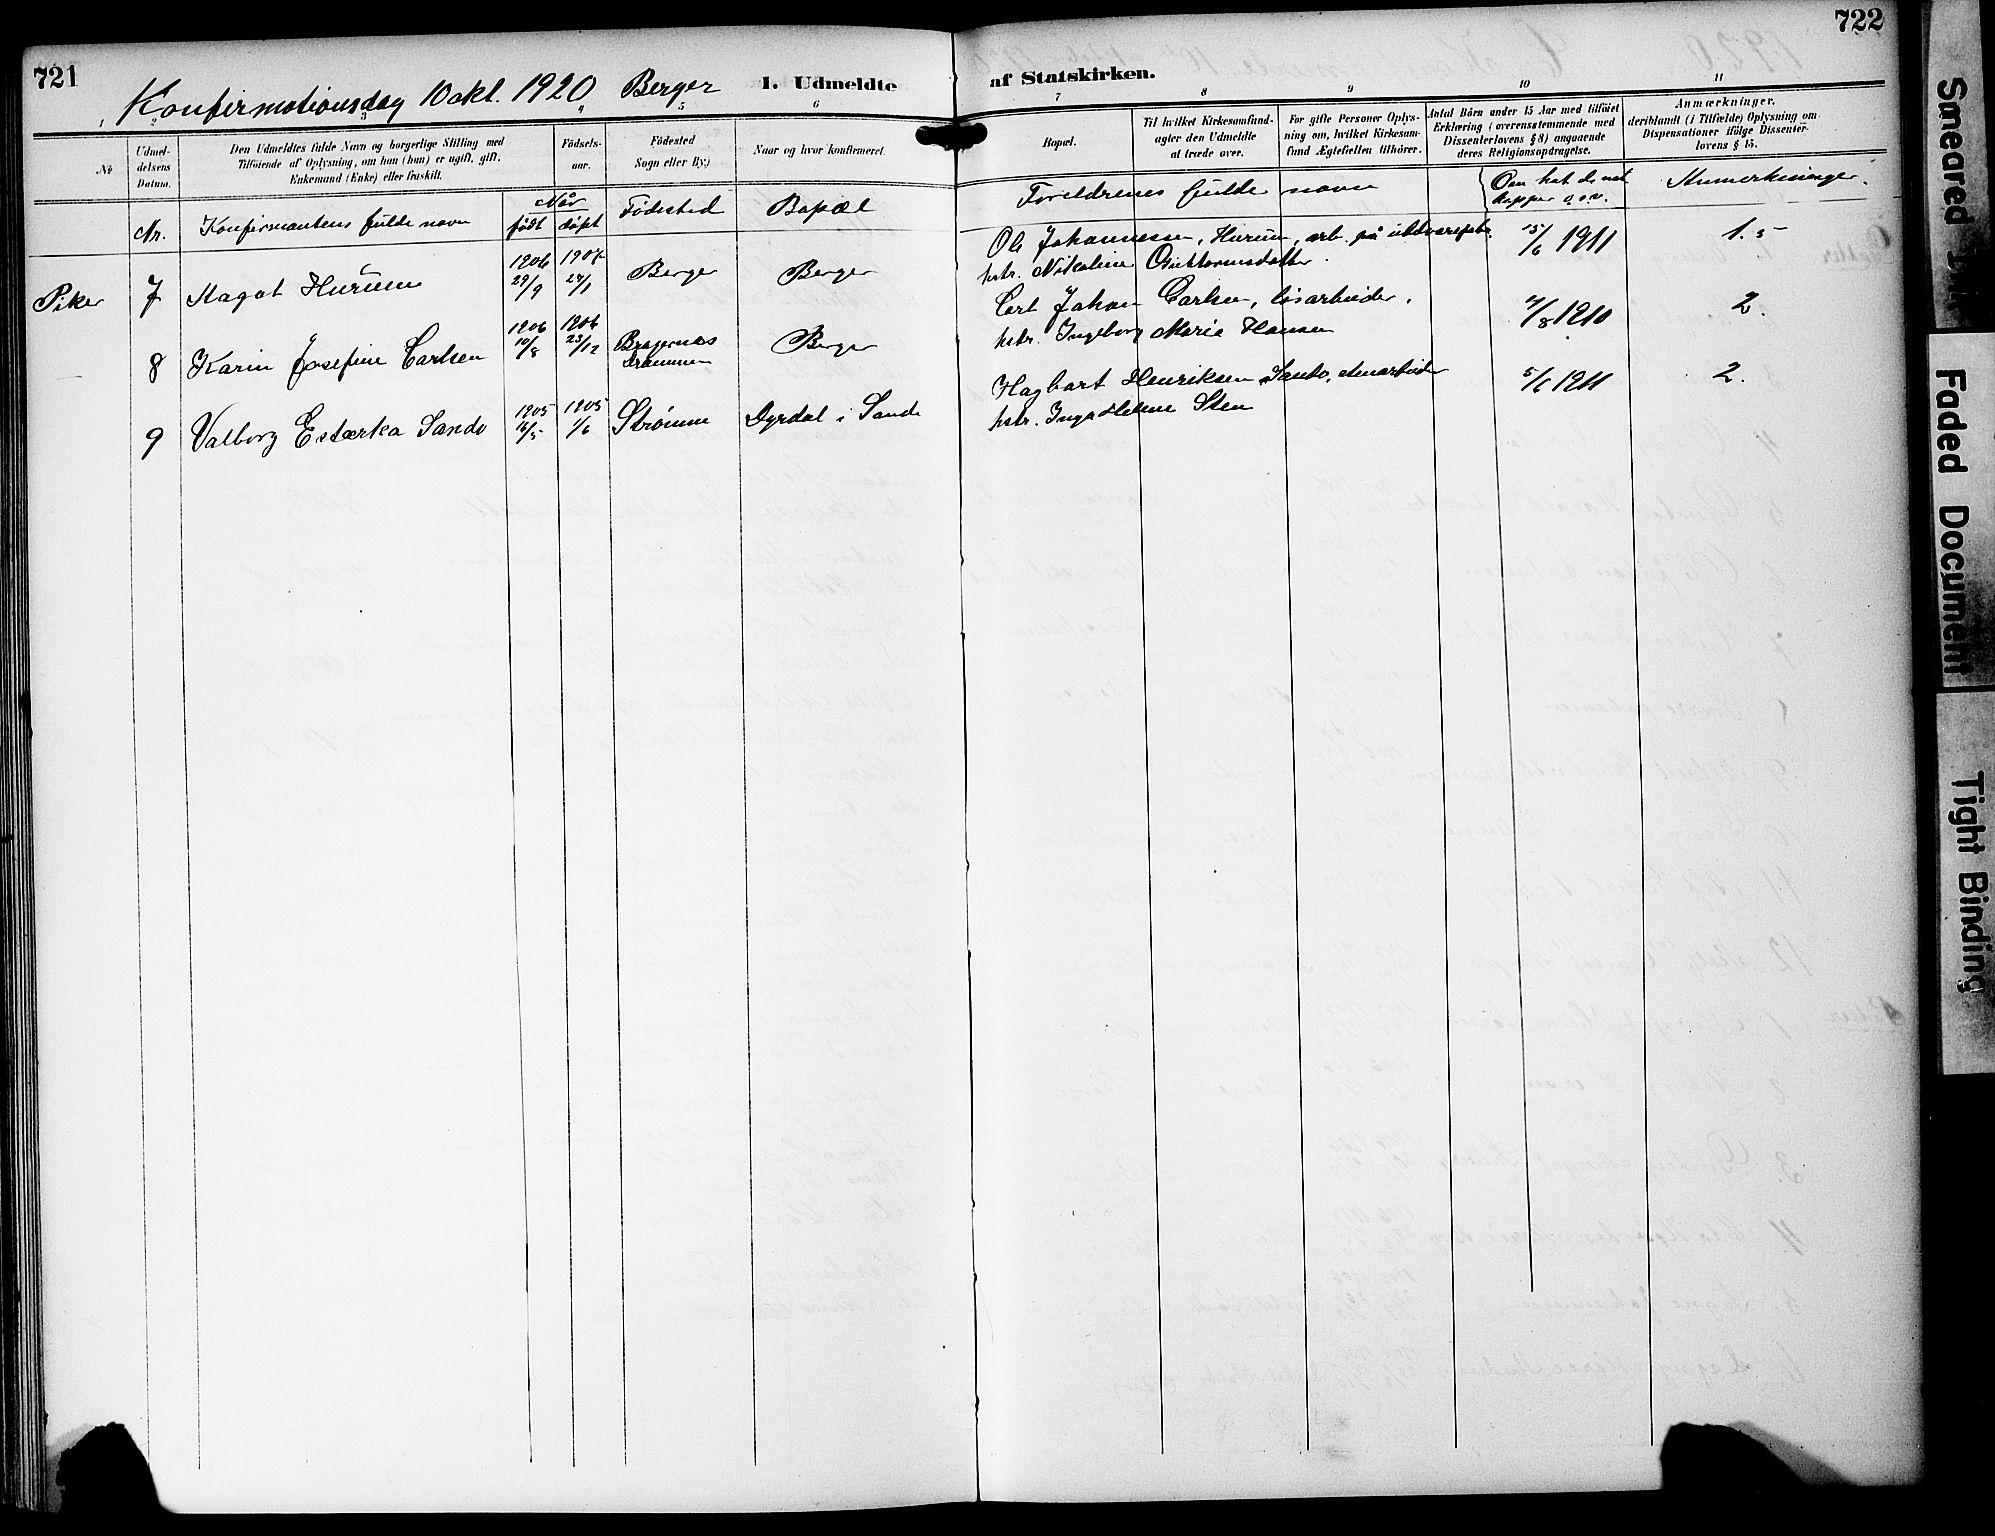 721
722
Konfirmationsdag 10 okt. 1920 Berger
1. Udmeldte af Statskirken.
1 2 3 4 5 6 7 8 9 10 11
No
Udmel-
delsens
Datum.
Den Udmeldtes fulde Navn og borgerlige Stilling med
Tilføiende af Oplysning, om han (hun) er ugift, gift,
Enkemand (Enke) eller fraskilt.
Fødsels-
aar.
Fødested
Sogn eller By.)
Naar og hvor konfirmeret.
Bopæl.
Til hvilket Kirkesamfund-
agter den Udmeldte
at træde over.
For gifte Personer Oplys-
ning om, hvilket Kirkesam-
fund Ægtefællen tilhører.
Antal Børn under 15 Aar med tilføiet
Erklæring (overensstemmende med
Dissenterlovens § 8) angaaende
deres Religionsopdragelse.
Anmærkninger,
deriblandt (i Tilfælde) Oplysning om
Dispensationer ifølge Dissenter-
lovens § 15.
Nr.
Konfirmantens fulde navn
Når
født døpt
Fødested
Bopæl
Foreldrenes fulde navn
Om hat de nat.
kopper o.s.v.
Anmerkninger.
Piker
7
Aagot Hurum
1906
29/9
1907
27/1
Berger
Berger
Ole Johannessen, Hurum, arb. på uldvarefabr.
hstr. Nikoline Guttormsdatter.
15/6 1911
1.5
8
Karin Josefine Carlsen
1906
10/8
1906
23/12
Bragernæs
Drammen
Berger
Carl Johan Carlsen, løsarbeider.
hstr. Ingeborg Marie Hansen
1910
2.
9
Valborg Sando
1905
16/5
1905
1/6
Strømm
Dyrdal i Sande
Hagbart Henriksen Sando,
hstr. Inga Helene Sten
1911
2.
Smeared Ink
Faded Document
Tight Binding